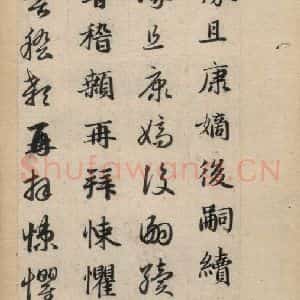 且康嫡後嗣續
且康嫡後嗣續
稽顙再拜悚懼
稽顙再拜悚懼
Shufawang.CN